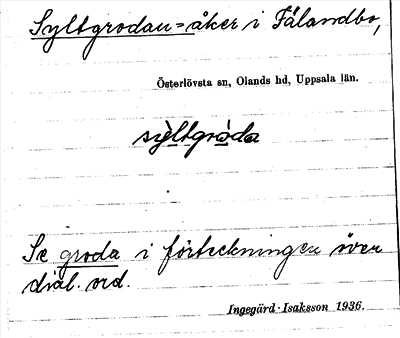 Syltgrodan = åker i Fälandbo,
Österlövsta sn, Olands hd, Uppsala län.
syltgroda
Se groda i förteckningen över
dial. ord.
Ingegärd Isaksson 1936.